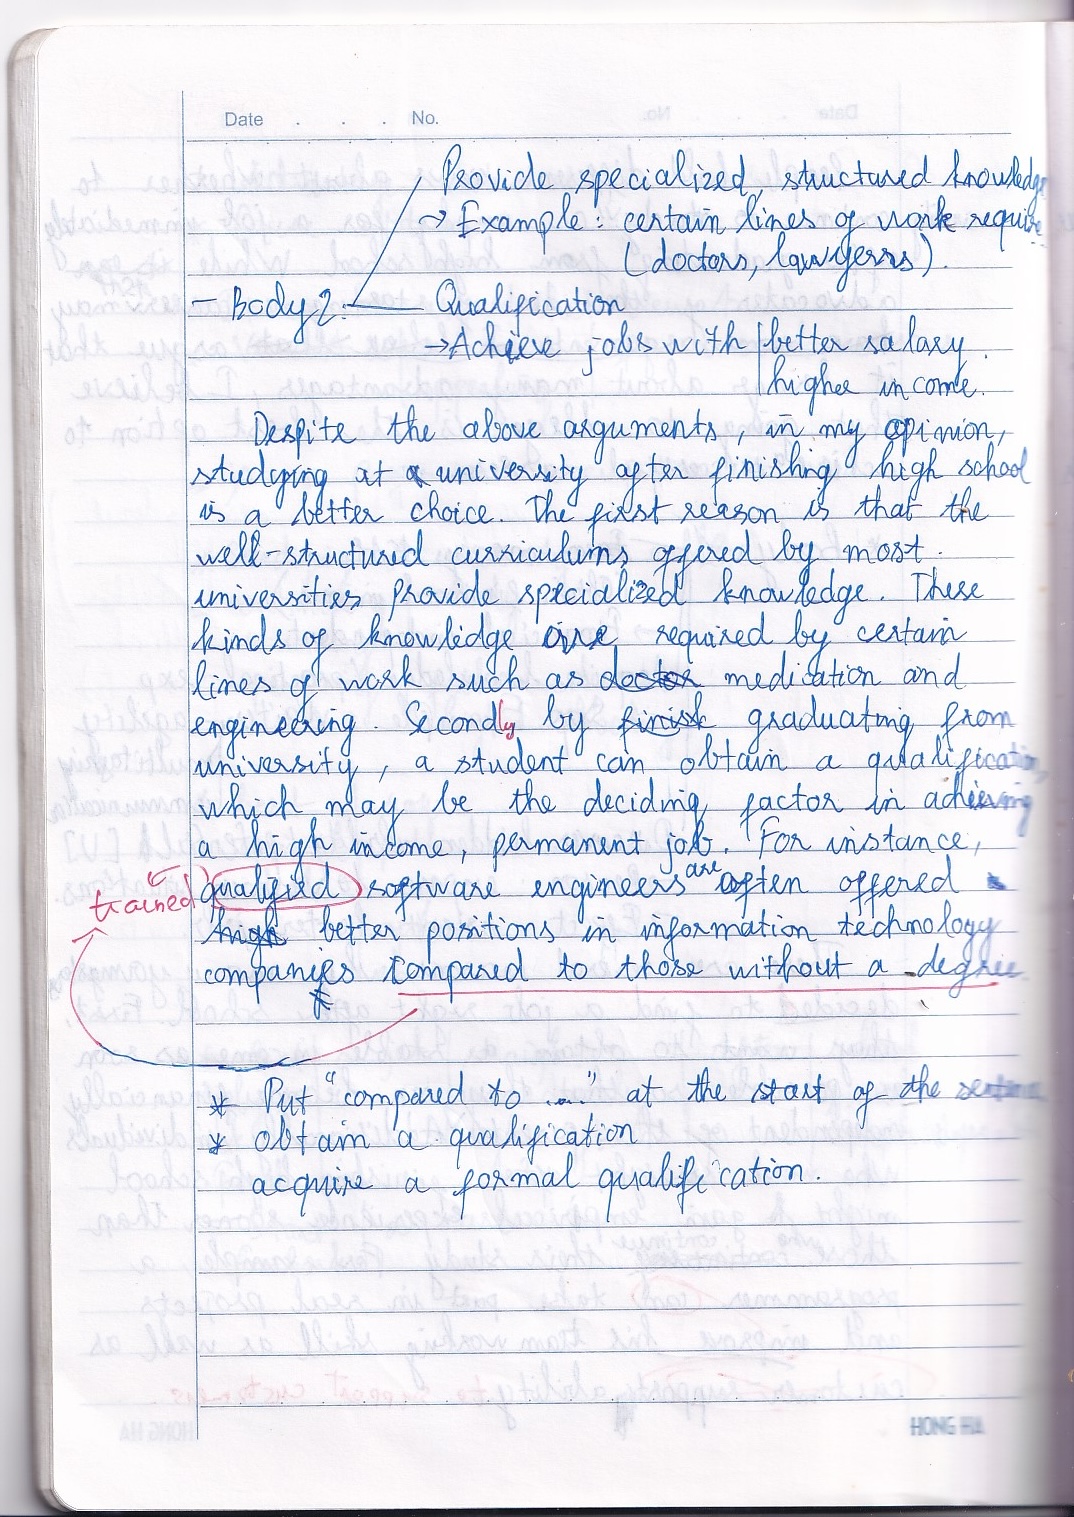 Date . . . No.
Provide specialized, structured knowledge
→ Example : certain lines of work require
(doctors, lawyers).
- Body 2: Qualification
→ Achieve jobs with better salary.
higher income.
Despite the above arguments, in my opinion,
studying at a university after finishing high school
is a better choice. The first reason is that the
well-structured curriculums offered by most
universities provide specialized knowledge. These
kinds of knowledge are required by certain
lines of work such as doctor medication and
engineering. Secondly by finish graduating from
university, a student can obtain a qualification,
which may be the deciding factor in achieving
a high income, permanent job. For instance,
trained qualified software engineers are often offered
high better positions in information technology
companies compared to those without a degree
*
* Put "compared to ...." at the start of the sentence
* obtain a qualification
acquire a formal qualification.
HONG HA